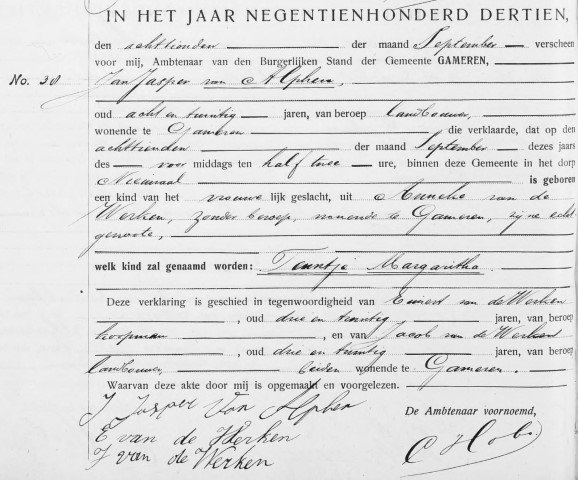 IN HET JAAR NEGENTIENHONDERD DERTIEN,
den achttienden der maand September verscheen
voor mij, Ambtenaar van den Burgerlijken Stand der Gemeente GAMEREN,
No. 38 Jan Jasper van Alphen,
oud acht en twintig jaren, van beroep landbouwer,
wonende te Gameren die verklaarde, dat op den
achttienden der maand September dezes jaars
des voor middags ten half twee ure, binnen deze Gemeente in het dorp
Nieuwaal is geboren
een kind van het vrouwe lijk geslacht, uit Anneke van de
Werken, zonder beroep, wonende te Gameren, zijne echt-
genoote,
welk kind zal genaamd worden: Teuntje Margaritha.
Deze verklaring is geschied in tegenwoordigheid van Evert van de Werken
, oud drie en twintig jaren, van beroep
koopman en van Jacob van de Werken
, oud drie en twintig jaren, van beroep
landbouwer, beiden wonende te Gameren.
Waarvan deze akte door mij is opgemaakt en voorgelezen.
J Jasper Van Alphen
De Ambtenaar voornoemd,
E van de Werken
J van de Werken